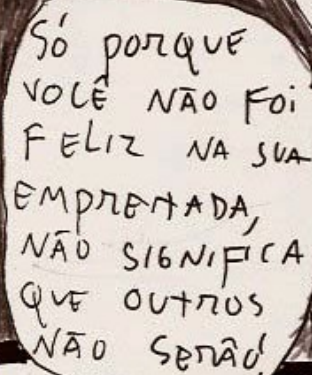 Só porque
você não foi
feliz na sua
emprenada,
não significa
que outros
não serão!